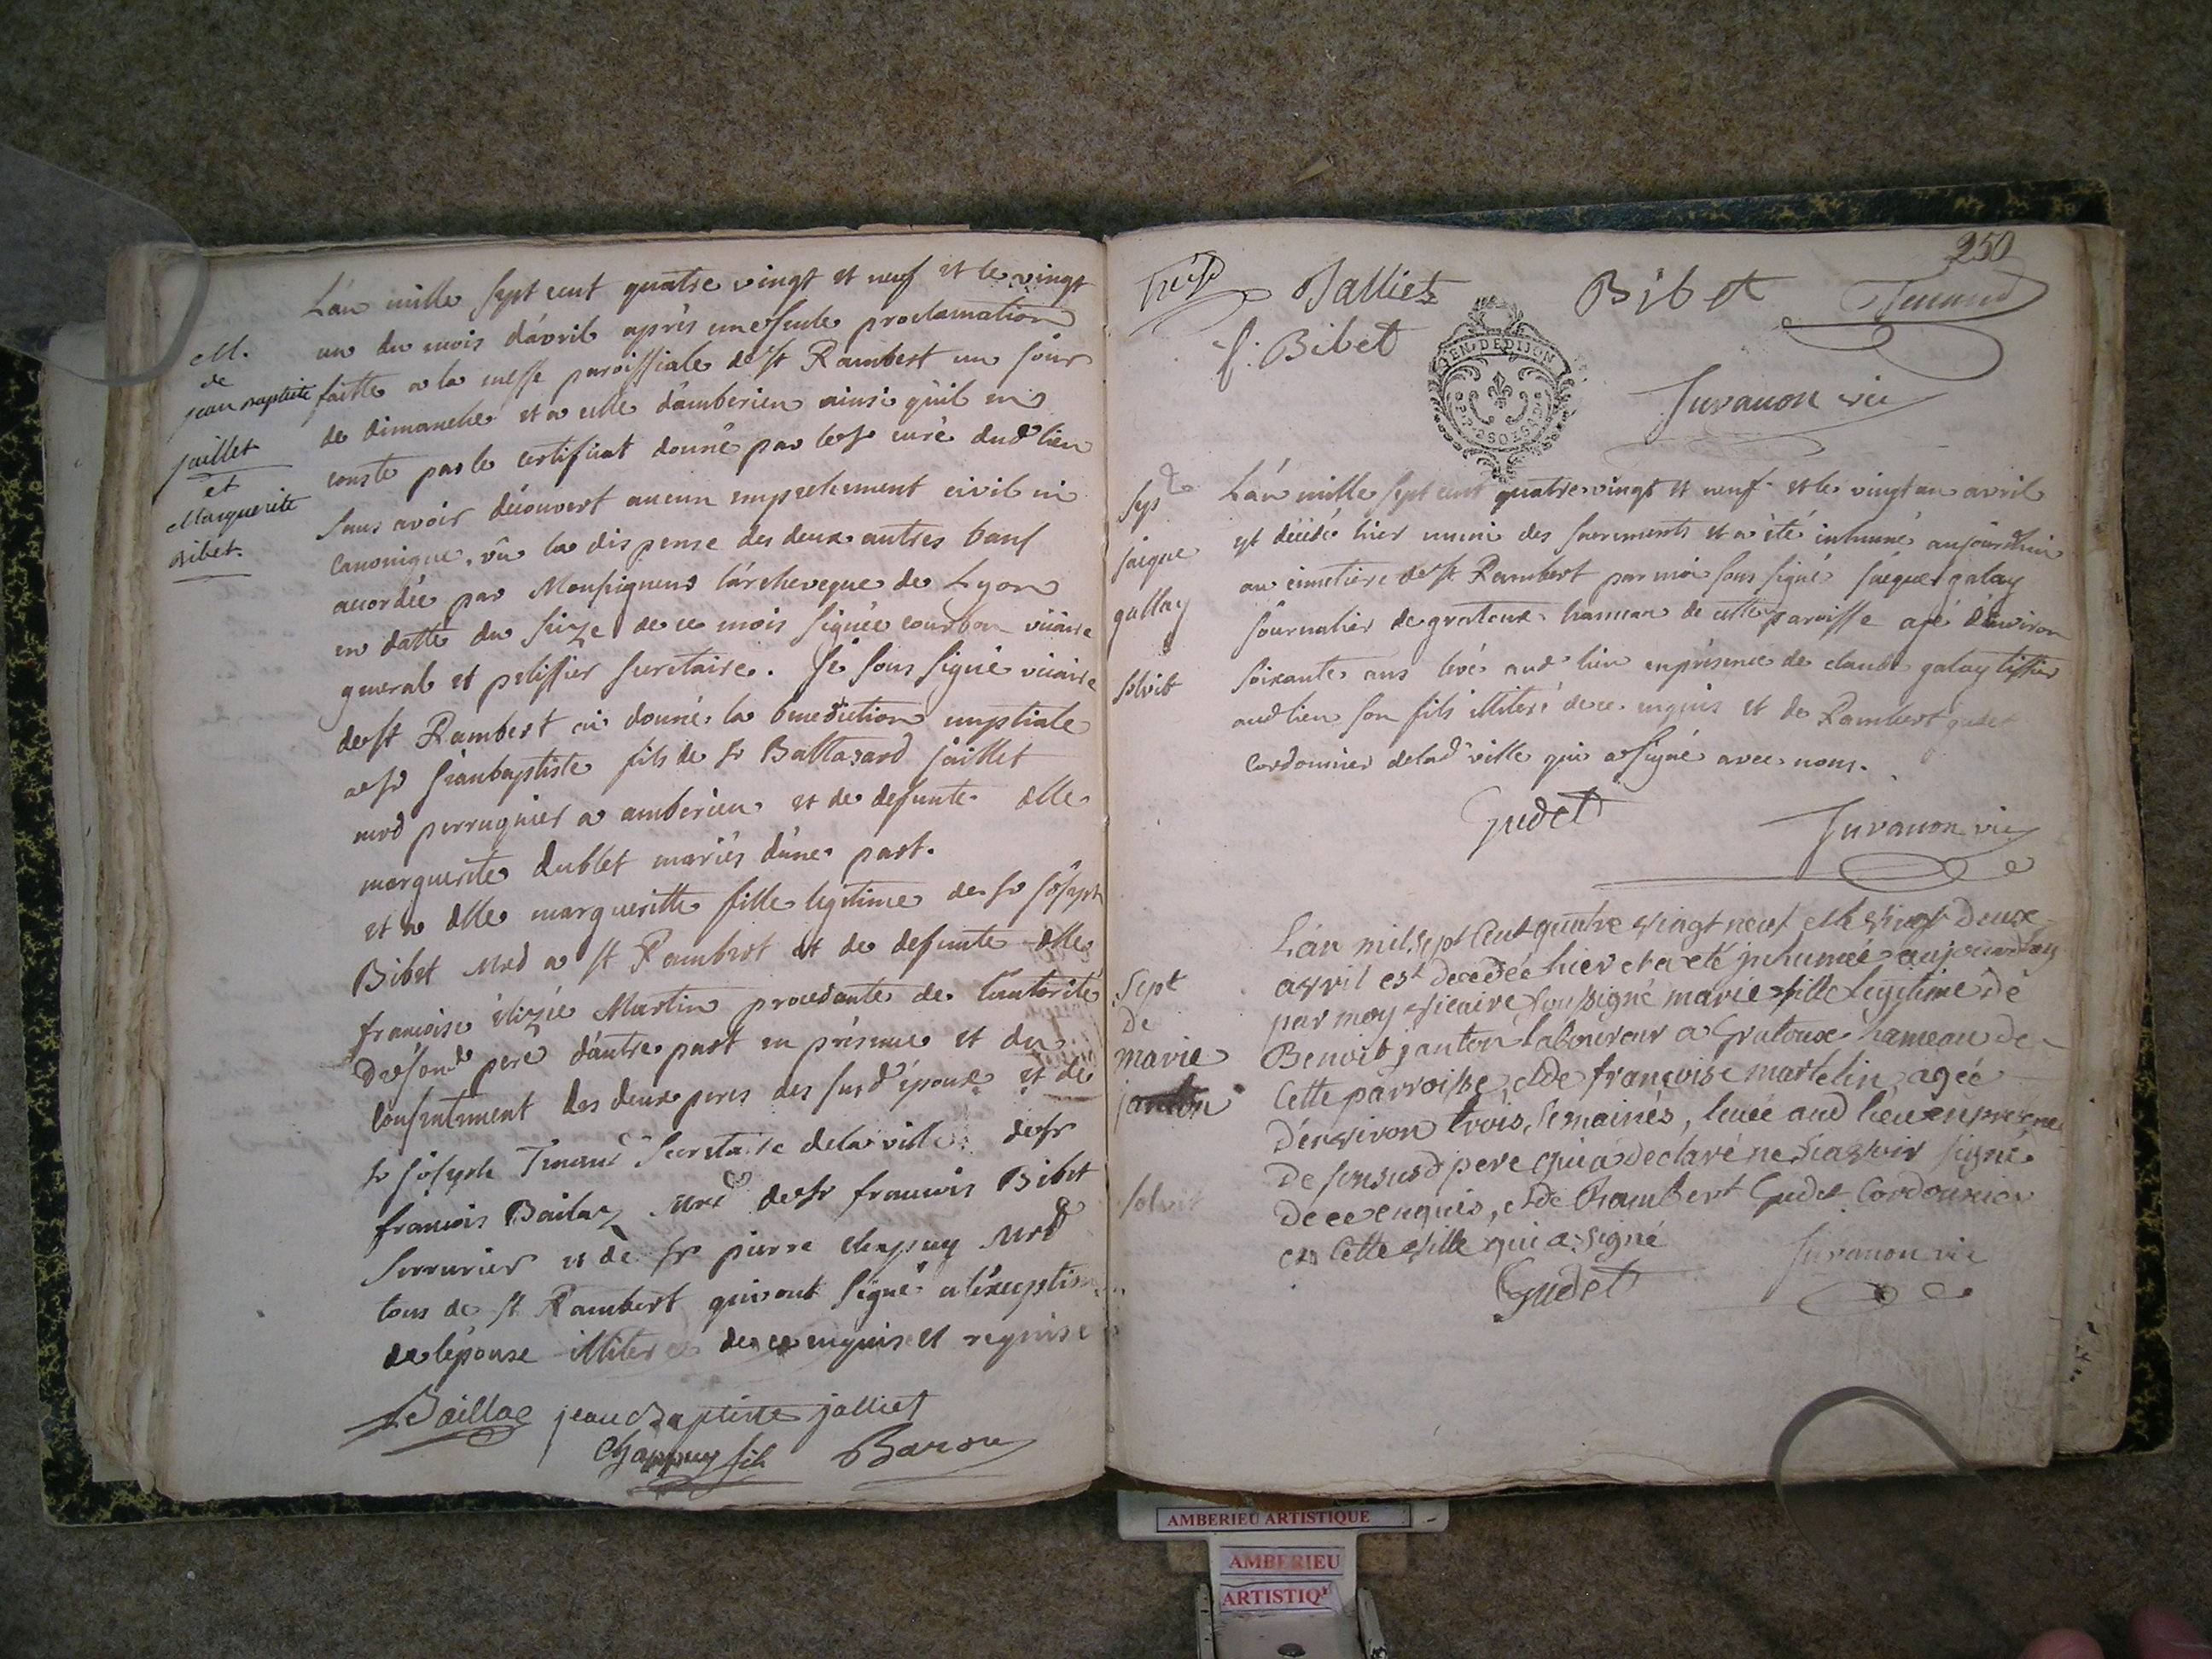 M.
de
jean baptiste
jaillet
et
Marguerite
Bibet.
L'án mille sept cent quatre vingt et neuf et le vingt
un du mois d'avril après une seule proclamation
faitte a la messe paroissiale de st Rambert un jour
de dimanche et a celle d'amberieu ainsi qu'il en
conste par le certificat donné par le sr curé dud lieu
sans avoir découvert aucun empechement civil ni
canonique, vû la dispense des deux autres bans
accordée par Monseigneur l'archeveque de Lyon
en datte du seize de ce mois signée courbon vicaire
general et pelissier secretaire. Je sous signé vicaire
de st Rambert ai donné la benediction nuptiale
a sr jeanbaptiste fils de sr Baltazard jaillet
mrd perruquier a amberieu et de defunte dlle
marguerite dublet mariés d'une part.
et a dlle margueritte fille legitime de sr joseph
Bibet Mrd a st Rambert et de defunte dlle
francoise élizée Martin procedante de l'autorité
de sond pere d'autre part en présence et du
consentement des deux peres des susd époux et de
sr joseph Tenand Secretaire de la ville de sr
francois Baillaz Mrd de sr francois Bibet
serrurier et de sr pierre chapuy Mrd
tous de st Rambert qui ont signé a l'exception
de l'épouse illiterée de ce enquise et requise
Baillac jean Baptiste jalliet
Chappuy fils Baron
250
Jalliet Bibet Tenand
f. Bibet
GEN. DE DIJON
Juvanon vic
Sep
jacque
gallay
solvit
L'án mille sept cent quatre vingt et neuf et le vingt un avril
est décédé hier muni des sacrements et a été inhumé aujourdhui
au cimetière de st Rambert par moi sous signé jacque galay
journalier de gratoux hameau de cette paroisse agé d'environ
soixante ans levé aud lieu en présence de claude galay tissier
aud lieu son fils illiteré de ce enquis et de Rambert gudet
cordonnier de lad ville qui a signé avec nous.
Gudet Juvanon vic
Sept
de
marie
janton
solvit
L'án mil sept Cent quatre vingt neuf et le vingt deux
avril est decedée hier et a eté inhumée aujourdhuy
par moy vicaire soussigné marie fille legitime de
Benoit janton laboureur a Gratoux hameau de
Cette parroisse, et de françoise martelin agée
d'environ trois semaines, levée aud lieu en presence
de son susd pere qui a declaré ne sçavoir signé
de ce enquis, et de Rambert Gudet Cordonnier
en Cette ville qui a signé
Gudet Juvanon vic
AMBERIEU ARTISTIQUE
AMBERIEU
ARTISTIQ